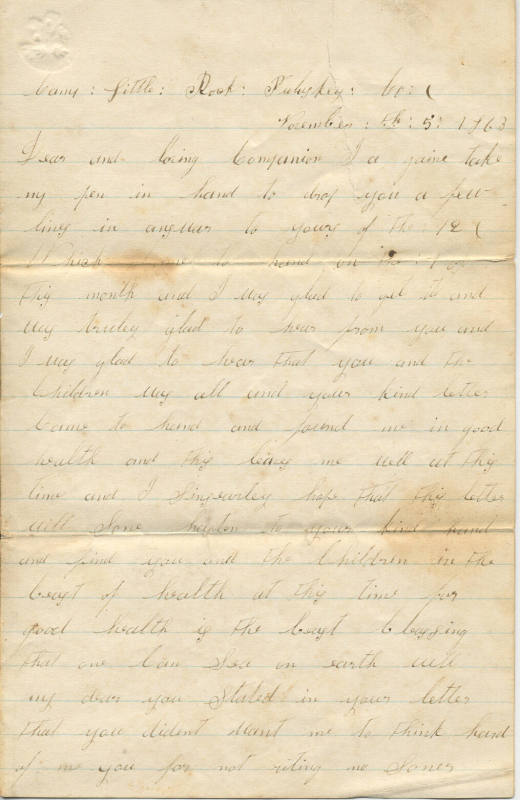 Camp: Little: Rock: Puluskey: Co: (
November: th: 5: 1863
Dear and loving Companion I a gaine take
my pen in hand to drop you a few
lines in anguar to yours of the: 12 (
Which came to hand on the: 1 of
this month and I was glad to get it and
was truley glad to hear from you and
I was glad to hear that you and the
Children was all and your kind letter
Came to hand and found me in good
health and this leavs me well at this
time and I Singcurley hope that this letter
will Sone hasten to your kind hand
and find you and the Children in the
beast of health at this time for
good health is the beast blessing
that one Can Sea on earth well
my dear you Stated in your letter
that you dident want me to think hard
of me you for not riting me Soner